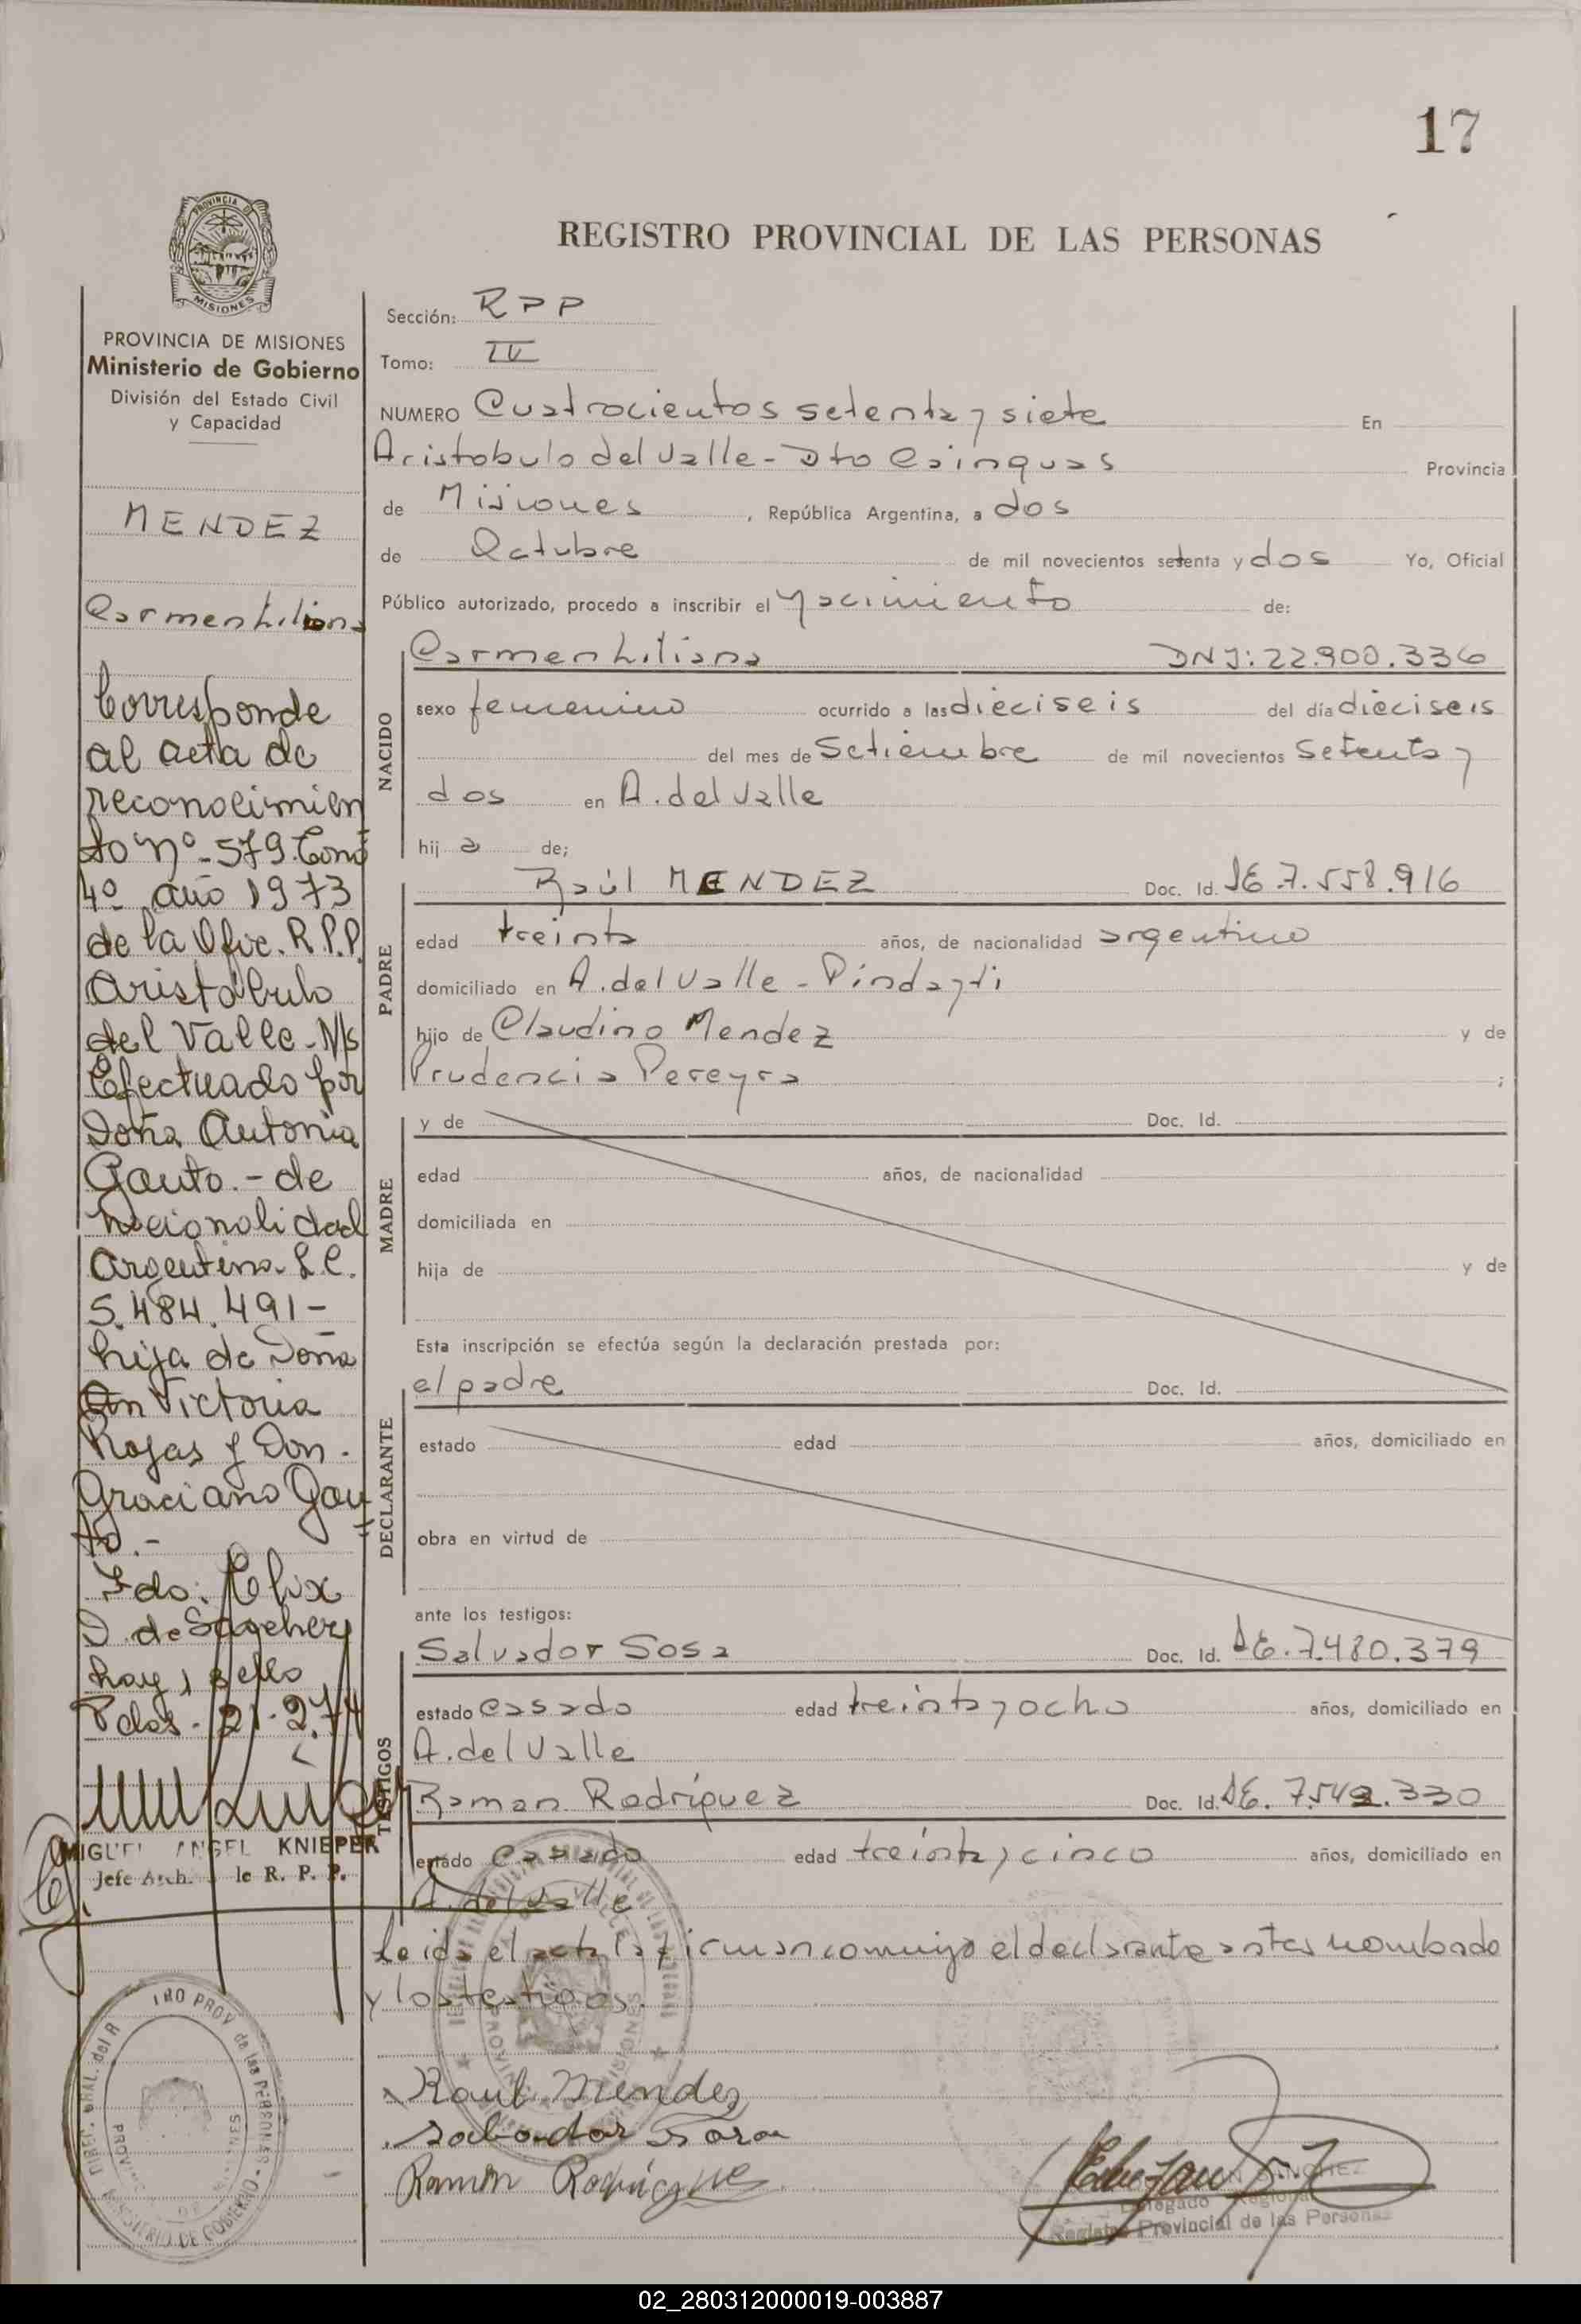 17
PROVINCIA DE
MISIONES
REGISTRO PROVINCIAL DE LAS PERSONAS
PROVINCIA DE MISIONES
Ministerio de Gobierno
División del Estado Civil
y Capacidad
MENDEZ
Carmen Liliana
Corresponde
al acta de
reconocimien
to Nº-579. Tomo
4º año 1973
de la Ofic. R.P.P.
Aristóbulo
del Valle-Ms
Efectuado por
Doña Antonia
Gauto.- de
nacionalidad
Argentina- L.C.
5.484.491-
hija de Doña
Victoria
Rojas y Don.
Graciano Gau
to.-
Fdo:
D. de
hay 1 sello
Pdas. 21-2.74
MIGUEL ANGEL KNIEPER
Jefe Arch. de R. P. P.
Sección: RPP
Tomo: IV
NUMERO Cuatrocientos setenta y siete En
Aristobulo del Valle - Dto Cainguas Provincia
de Misiones, República Argentina, a dos
de Octubre de mil novecientos setenta y dos Yo, Oficial
Público autorizado, procedo a inscribir el Nacimiento de:
NACIDO
Carmen Liliana DNI: 22.900.336
sexo femenino ocurrido a las dieciseis del día dieciseis
del mes de Setiembre de mil novecientos Setenta y
dos en A. del Valle
hij a de;
PADRE
Raúl MENDEZ Doc. Id. LE.7.558.916
edad treinta años, de nacionalidad argentino
domiciliado en A. del Valle - Pindayti
hijo de Claudino Mendez y de
Prudencia Pereyra ;
MADRE
y de Doc. Id.
edad años, de nacionalidad
domiciliada en
hija de y de
Esta inscripción se efectúa según la declaración prestada por:
DECLARANTE
el padre Doc. Id.
estado edad años, domiciliado en
obra en virtud de
ante los testigos:
TESTIGOS
Salvador Sosa Doc. Id. LE.7.480.379
estado casado edad treinta y ocho años, domiciliado en
A. del Valle
Ramon Rodríguez Doc. Id. LE. 7.542.330
estado casado edad treinta y cinco años, domiciliado en
A. del Valle
Leida el acta la firman conmigo el declarante antes nombrado
y los testigos.
Raul Mendez
Salvador Sosa
Ramon Rodriguez
SANCHEZ
Delegado Regional
Registro Provincial de las Personas
DIREC. GRAL. del R PROV de las PERSONAS
MINISTERIO DE GOBIERNO
02_280312000019-003887